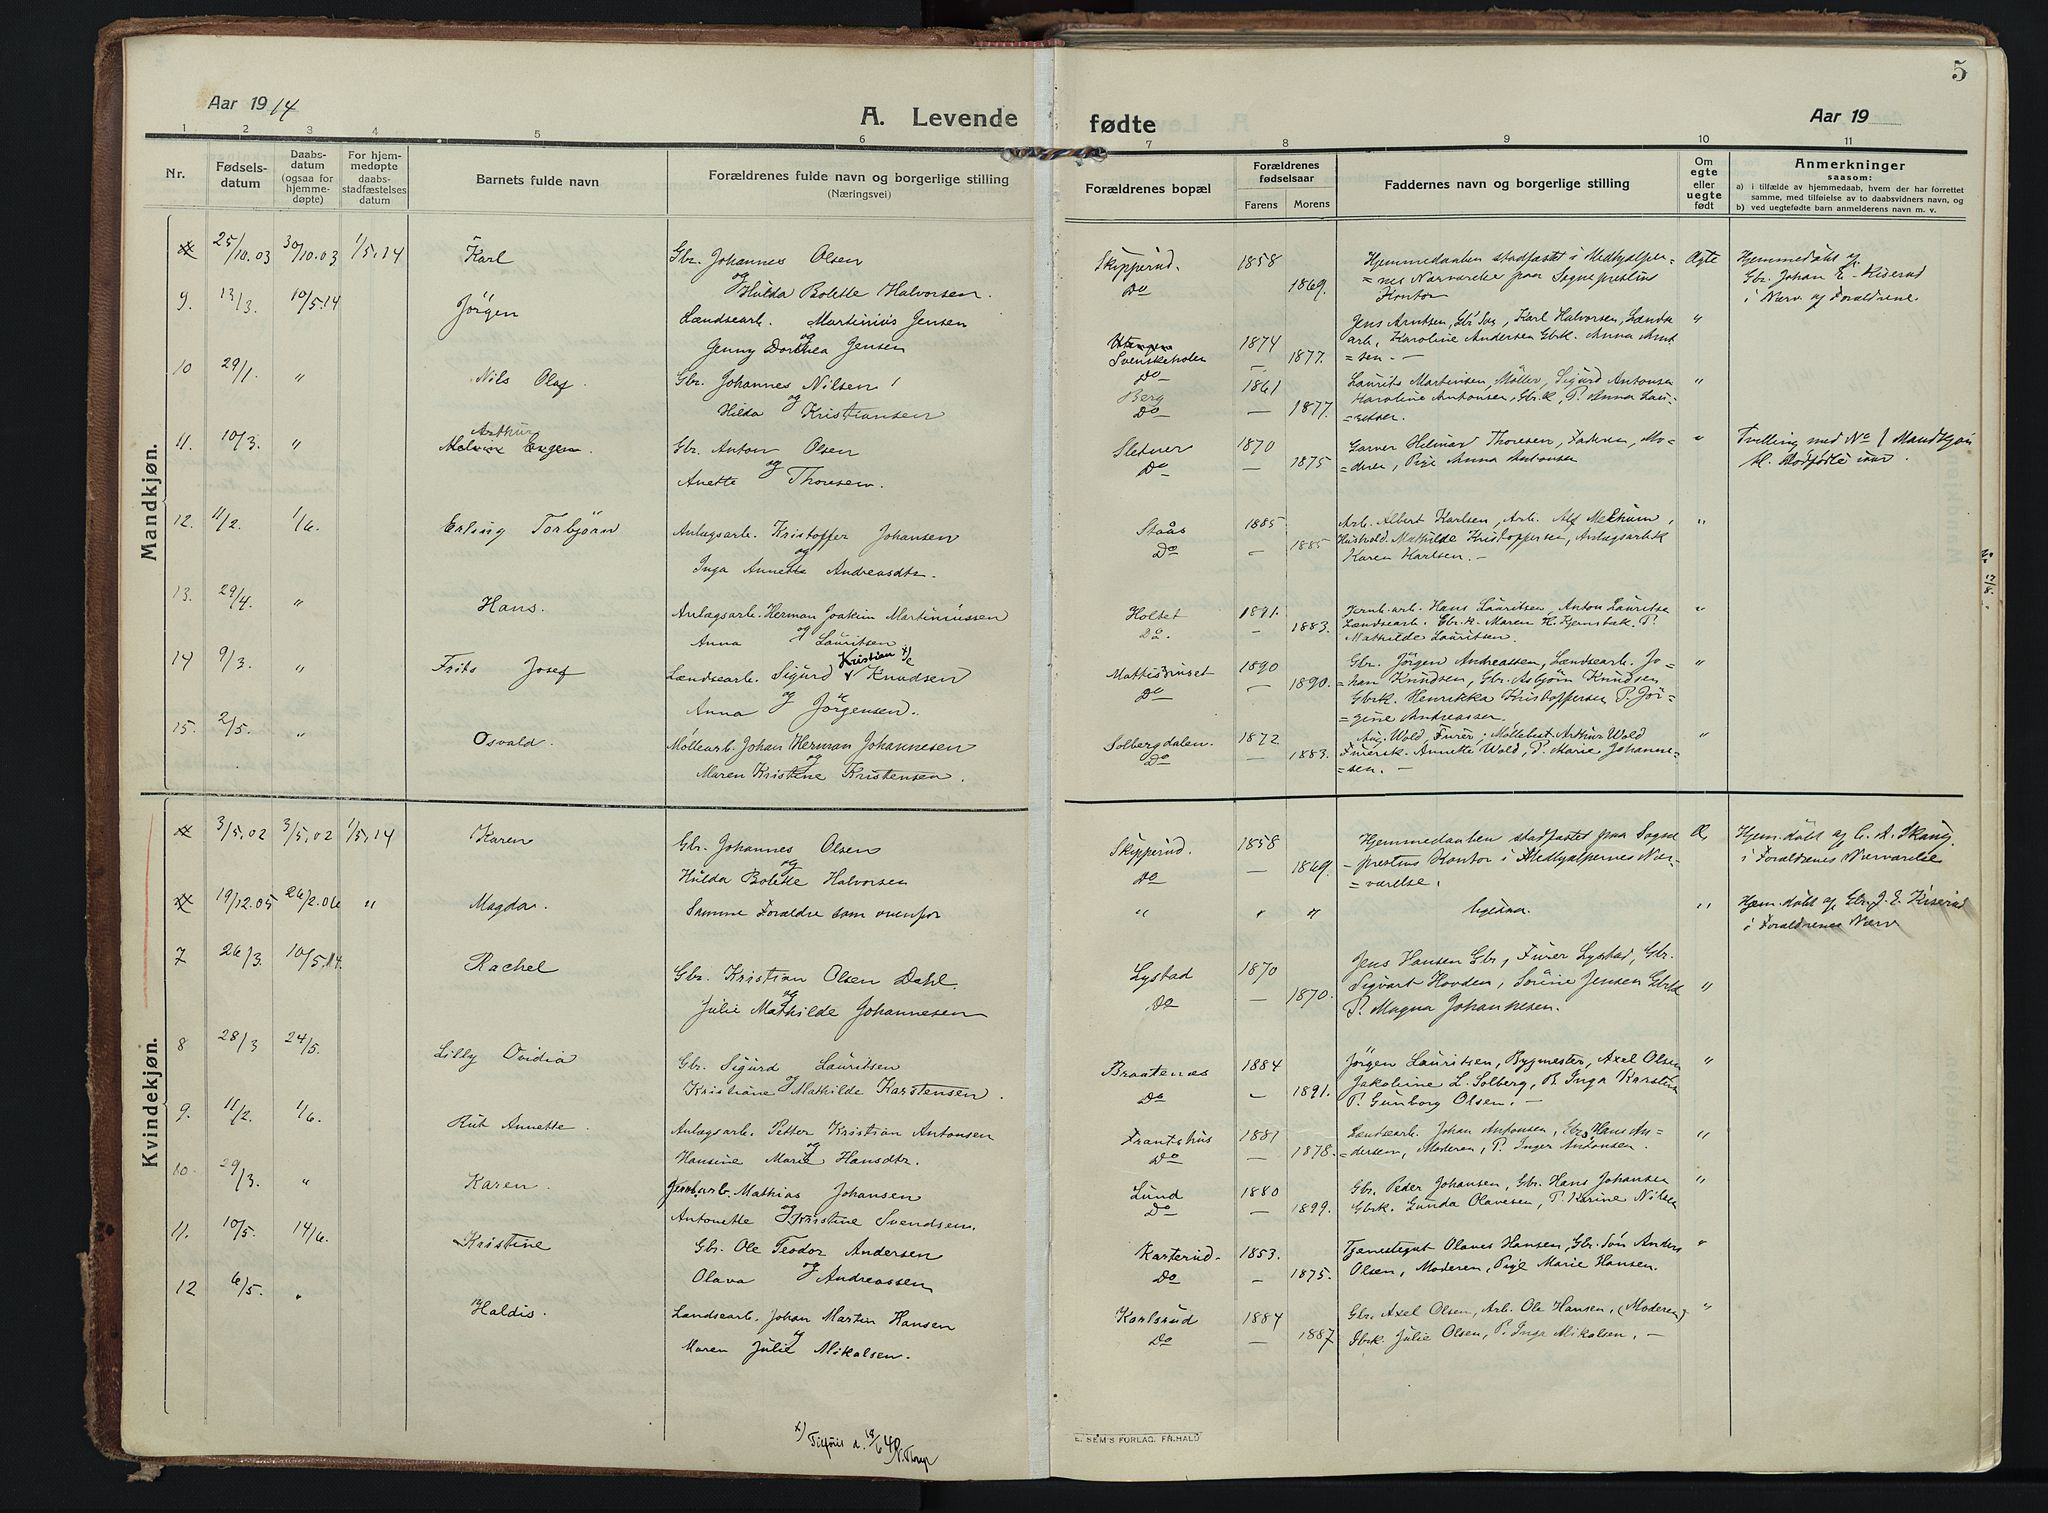 5
Aar 1914
A. Levende
fødte
Aar 19
1 2 3 4 5 6 7 8 9 10 11
Nr.
Fødsels-
datum
Daabs-
datum
(ogsaa for
hjemme-
døpte)
For hjem-
medøpte
daabs-
stadfæstelses
datum
Barnets fulde navn
Forældrenes fulde navn og borgerlige stilling
(Næringsvei)
Forældrenes bopæl
Forældrenes
fødselsaar
Farens Morens
Faddernes navn og borgerlige stilling
Om
egte
eller
uegte
født
Anmerkninger
saasom:
a) i tilfælde av hjemmedaab, hvem der har forrettet
samme, med tilføielse av to daabsvidners navn, og
b) ved uegtefødte barn anmelderens navn m. v.
Mandkjøn.
25/10.03 30/10.03 1/5.14 Karl Gbr. Johannes Olsen
og
Hulda Bolette Halvorsen.
Skipperud. 1858
Do 1869.
Hjemmedaaben stadfæstet i Medhjælper-
=nes Nærværelse paa Sogneprestens
Kontor
Ægte
Hjemmedøbt af
Gbr. Johan E. Kiserud
i Nærv. af Forældrene
9. 13/3. 10/5.14 Jörgen Lændsearb. Martinius Jensen
og
Jenny Dorthea Jensen
Svenskeholen 1874
Do — 1877.
Jens Arntsen, Gbr Søn, Karl Halvorsen, Lændse
arb, Karoline Andersen Gbrk. Anna Arnt
=sen. —
"
10 29/1. " Nils Olaf. Gbr. Johannes Nilsen
og
Hilda Kristiansen
Berg 1861
Do — 1877.
Laurits Martinsen, Møller, Sigurd Antonsen
Karoline Antonsen, Gbrk, P. Anna Lau-
=ritsen.
"
11. 10/3. " Arthur
Eugen. Gbr. Anton Olsen
og
Anette Thoresen.
Sletner 1870
Do — 1875
Garver Hilmar Thoresen, Faderen, Mo-
deren, Pige Anna Antonsen
"
Tvilling med No 1 Mandkjön
bl. dödfødte iaar.
12. 11/2. 1/6. Erling Torbjörn Anlægsarb. Kristoffer Johansen
og
Inga Annette Andreasdtr.
Staås 1885
Do — 1885
Arb. Albert Karlsen, Arb. Alf Melhum,
Hushold. Mathilde Kristoffersen, Anlægsarbk
Karen Karlsen. —
"
13. 29/4. " Hans. Anlægsarb. Herman Joakim Martiniussen
og
Anna Lauritsen
Holtet 1891.
Do. — 1883.
Jernb.arb. Hans Lauritsen, Anton Lauritsen
Lændsearb. Gbr.k. Maren H. Fjernbak. P.
Mathilde Lauritsen.
"
14 9/3. " Frits Josef Lændsearb. Sigurd Kristian x) Knudsen
og
Anna Jörgensen.
Mattisbruset 1890
Do — 1890.
Gbr. Jörgen Andreassen, Lændsearb. Jo=
=han Knudsen, Gbr. Asbjörn Knudsen
Gbrk. Henrikka Kristoffersen P. Jör-
=gine Andreassen.
"
15. 2/5. " Osvald. Møllearb. Johan Herman Johannesen
og
Maren Kristine Kristensen.
Solbergdalen. 1872.
Do — 1883.
Aug. Wold, Furer, Møllebest Arthur Wold
Furersk. Annette Wold, P. Marie Johanne-
=sen. —
"
Kvindekjøn.
3/5.02 3/5.02 1/5.14 Karen Gbr. Johannes Olsen
og
Hulda Bolette Halvorsen
Skipperud. 1858
Do — 1869.
Hjemmedaaben stadfæstet paa Sogne
prestens Kontor i Medhjælpernes Nær-
=værelse.
Æ
Hjem.døbt af C. A. Skaug.
i Forældrenes Nærværelse
19/12.05 26/2.06 " Magda. Samme Forældre som ovenfor
" " " ligedan. "
Hjem.døbt af Gbr. J. E. Kiserud
i Forældrenes Nærv
7 26/3. 10/5.14. Rachel Gbr. Kristian Olsen Dahl.
og
Julie Mathilde Johannesen
Lystad 1870
Do — 1870.
Jens Hansen Gbr, Furer Lystad, Gbr.
Sigvart Hovden, Sörine Jensen Gbrk
P. Magna Johannesen.
"
8 28/3 24/5. Lilly Ovidia Gbr. Sigurd Lauritsen
og
Kristiane Mathilde Karstensen.
Braatenæs 1884
Do — 1891.
Jörgen Lauritsen, Bygmester, Axel Olsen
Jakoline L. Solberg, P. Inga Karstensen
P. Gunborg Olsen. —
"
9. 11/2. 1/6. Rut Annette. Anlægsarb. Petter Kristian Antonsen
og
Hansine Marie Hansdtr.
Frantshus 1881
Do — 1878.
Lændsearb. Johan Antonsen, Gbrs Hans An=
=dersen, Moderen, P. Inger Antonsen.
"
10. 29/3. " Karen. Jernb.arb. Mathias Johansen
og
Antonette Kristine Svendsen.
Lund 1880
Do — 1899.
Gbr. Peder Johansen, Gbr. Hans Johansen
Gbrk. Lunda Olavesen, P. Karine Nilsen
"
11. 10/5. 14/6. Kristine Gbr. Ole Teodor Andersen
og
Olava Andreassen
Karterud. 1853.
Do — 1875.
Tjenestegut Olaves Hansen, Gbr. Søn Anders
Olsen, Moderen, Pige Marie Hansen.
"
12 6/5. " Haldis. Lændsearb. Johan Martin Hansen
og
Maren Julie Mikalsen.
Karlsrud 1884
Do — 1887
Gbr. Axel Olsen, Arb. Ole Hansen, (Moderen)
Gbrk. Julie Olsen, P. Inga Mikalsen. —
"
x) Tilføiet d.
E. SEM'S FORLAG. FR.HALD